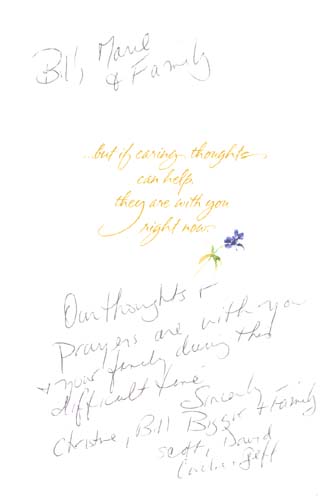 Bill, Marie
& Family
...but if caring thoughts
can help,
they are with you
right now.
Our thoughts &
prayers are with you
+ your family during this
difficult time
Sincerely
Christine, Bill Biggar & Family
Scott, David
Jeff